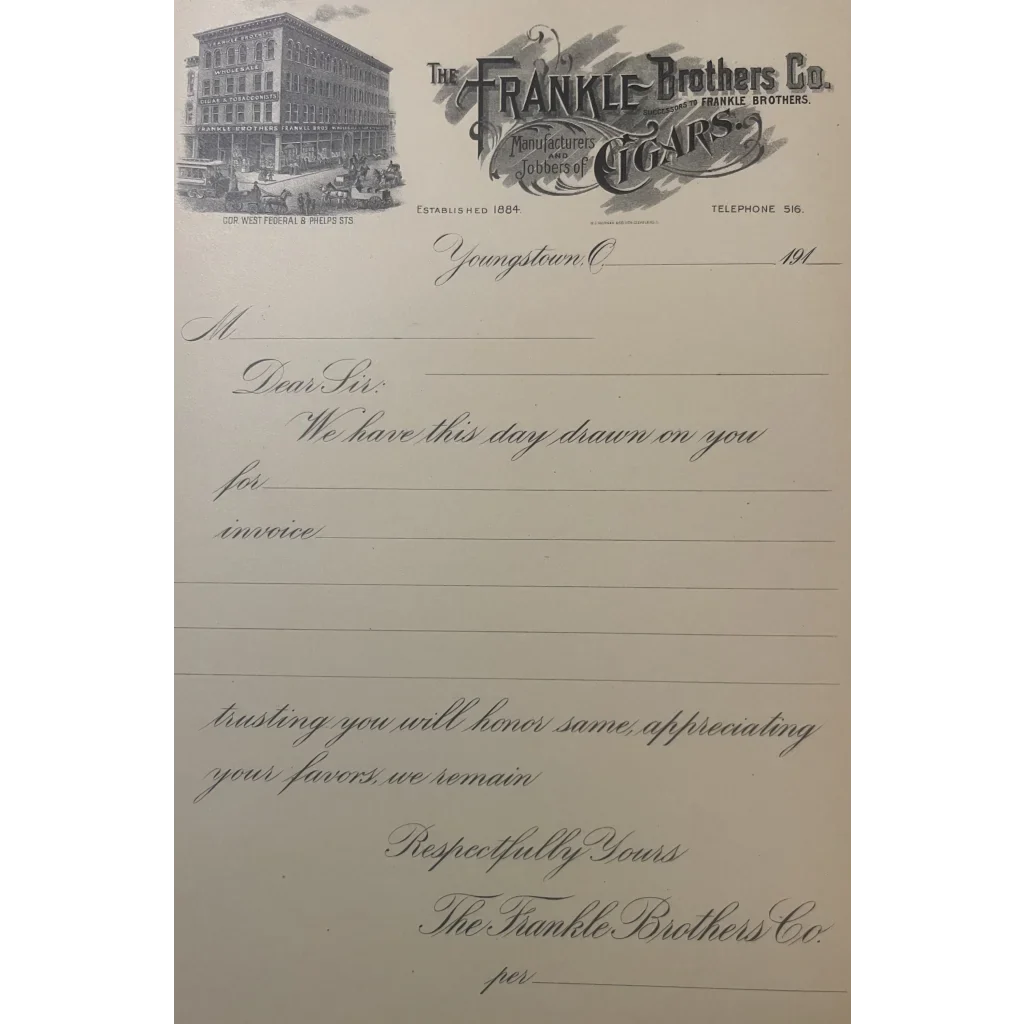 FRANKLE BROTHERS
WHOLESALE
CIGAR & TOBACCONISTS
FRANKLE BROTHERS FRANKLE BROS
COR WEST FEDERAL & PHELPS STS
THE FRANKLE Brothers Co.
SUCCESSORS TO FRANKLE BROTHERS.
Manufacturers
AND
Jobbers of
CIGARS.
ESTABLISHED 1884.
TELEPHONE 516.
Youngstown, O. 191
M
Dear Sir:
We have this day drawn on you
for
invoice
trusting you will honor same, appreciating
your favors, we remain
Respectfully Yours
The Frankle Brothers Co.
per